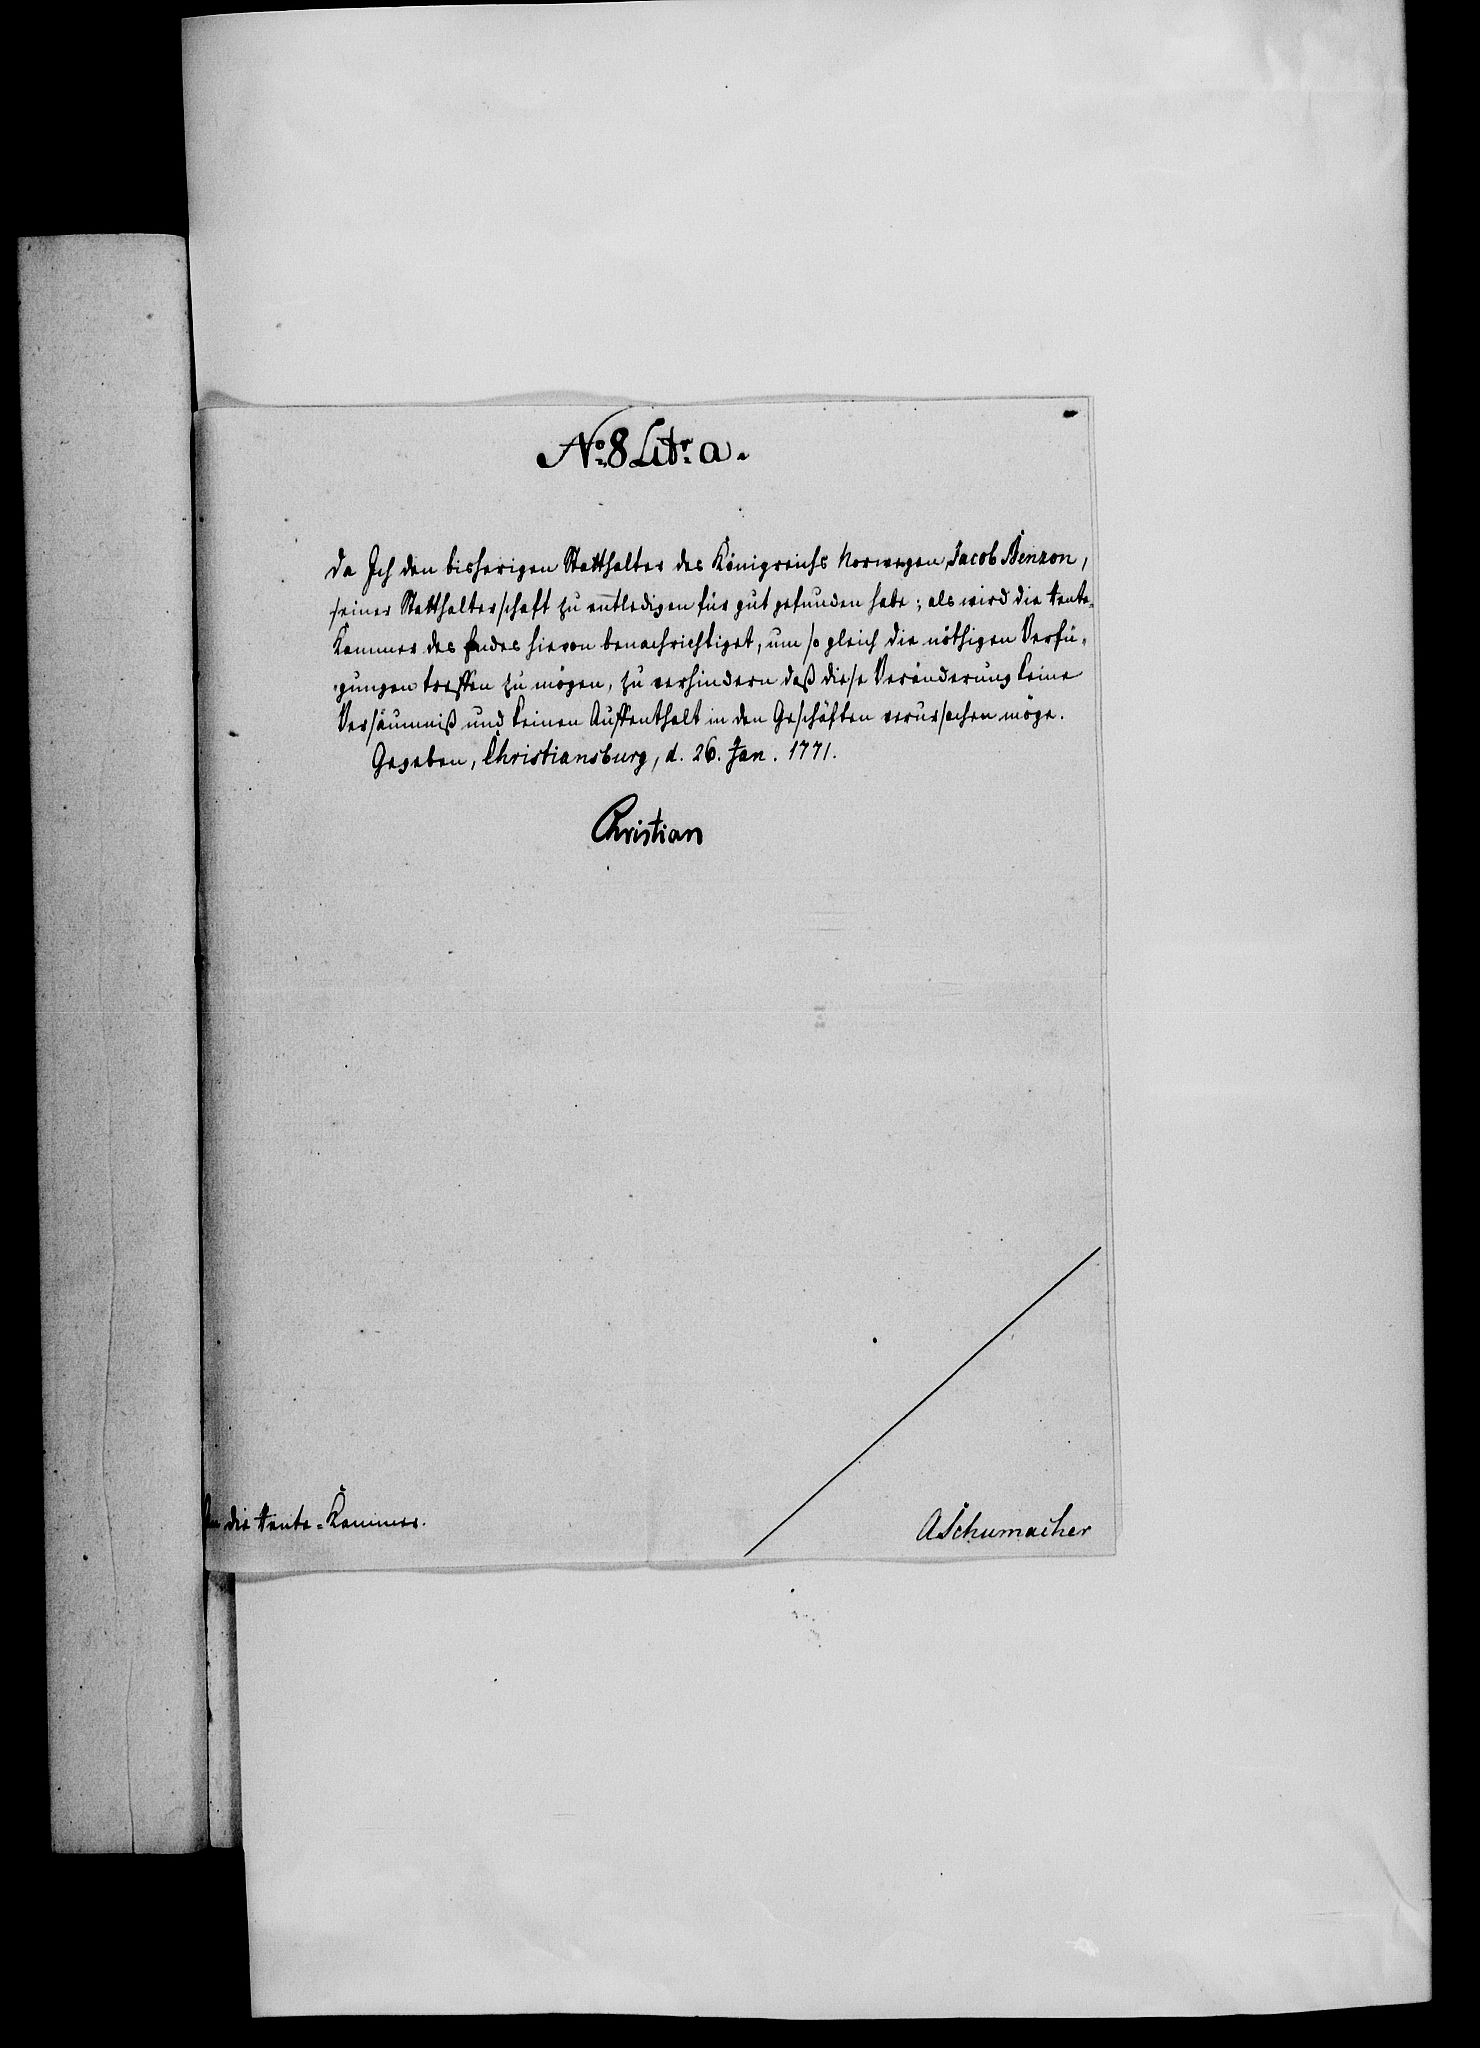 No. 8 Litr. a.
Da Ich den bisherigen Statthalter des Königreichs Norwegen, Jacob Benzon,
seiner Statthalterschaft zu entledigen für gut gefunden habe; als wird die Rente-
Kammer des Endes hievon benachrichtiget, um so gleich die nöthigen Verfü-
gungen treffen zu mögen, zu verhindern daß diese Veränderung keine
Versäumniß und keinen Auffenthalt in den Geschäften verursachen möge.
Gegeben, Christiansburg, d. 26. Jan. 1771.
Christian
An die Rente-Kammer.
ASchumacher